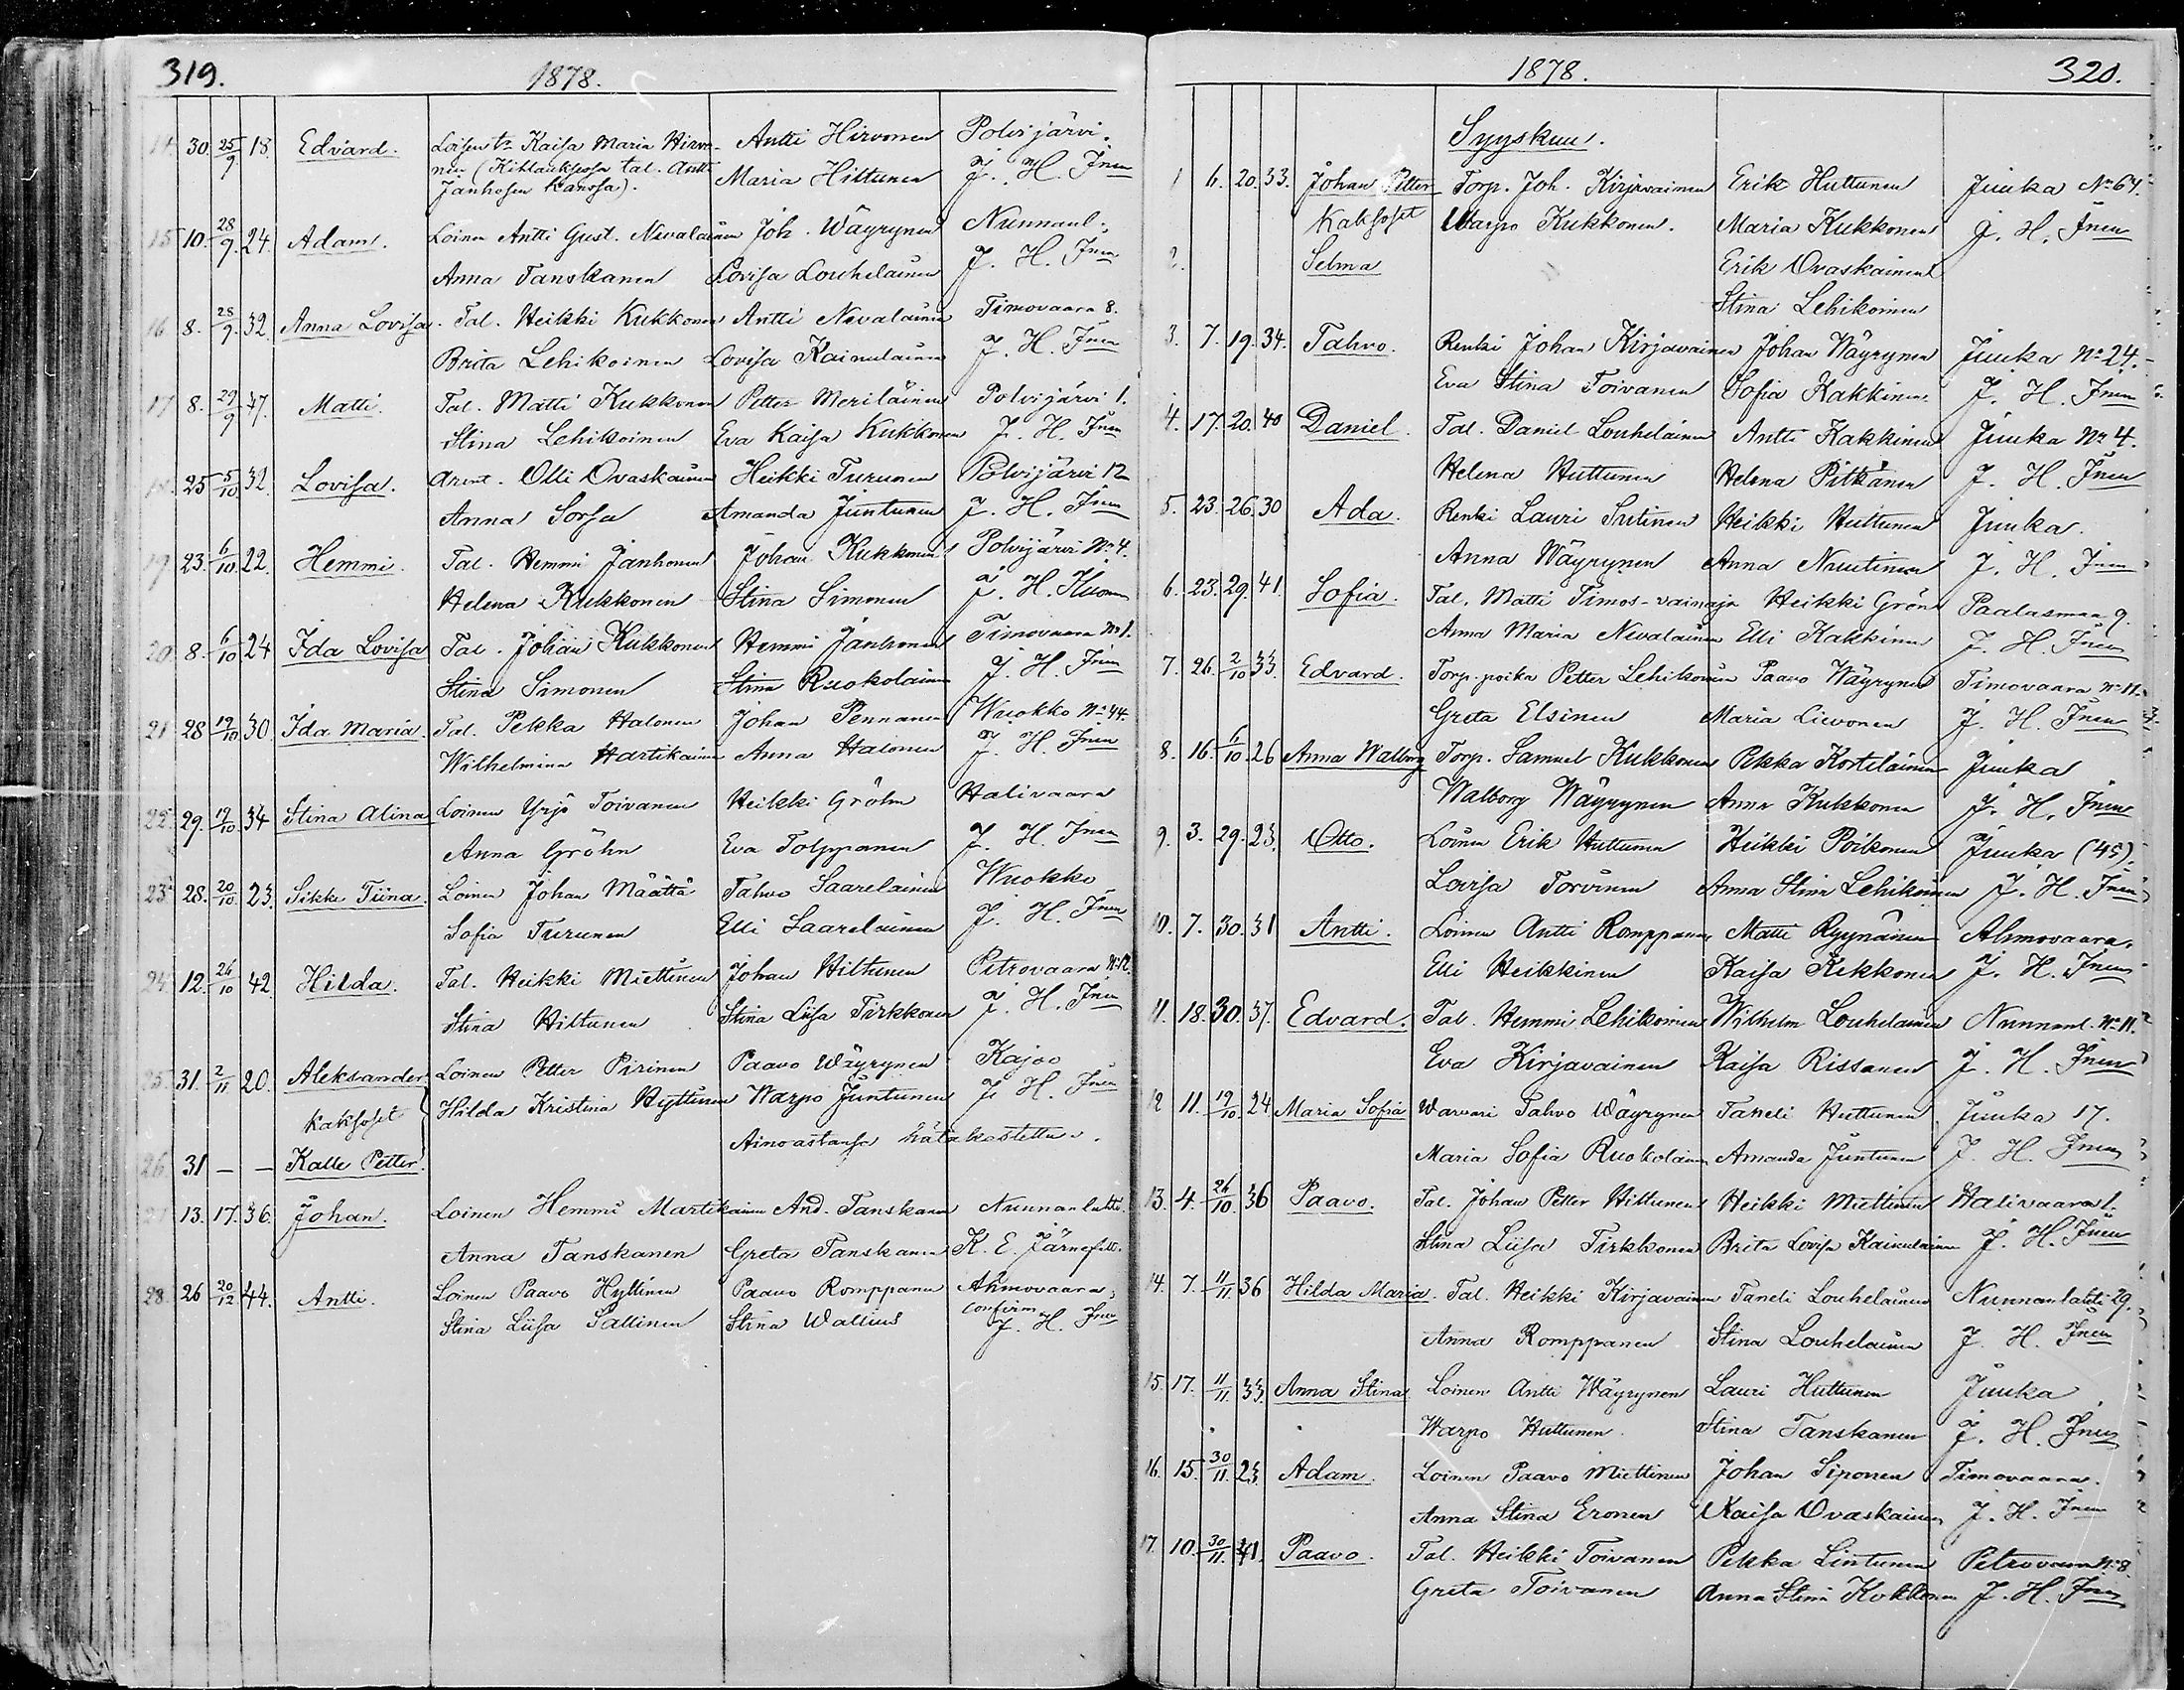 319.
1878.
14. 30. 25/9. 18. Edvard. Loisen tr Kaisa Maria Hirvo- Antti Hirvonen Polvijärvi.
nen (Kihlauksessa tal. Antti Maria Hiltunen J. H. Jnen
Janhosen kanssa).
15 10. 28/9. 24. Adam. Loinen Antti Gust. Nevalainen Joh. Wäyrynen Nunnanl.
Anna Tanskanen Lovisa Louhelainen J. H. Jnen
16 8. 28/9. 32. Anna Lovisa. Tal. Heikki Kukkonen Antti Nevalainen Timovaara 8.
Brita Lehikoinen Lovisa Kainulainen J. H. Jnen
17 8. 29/9 47. Matti. Tal. Matti Kukkonen Petter Meriläinen Polvijärvi 1.
Stina Lehikoinen Eva Kaisa Kukkonen J. H. Jnen
18. 25 5/10 32. Lovisa. Arent. Olli Ovaskainen Heikki Turunen Polvijärvi 12
Anna Sorsa Amanda Juntunen J. H. Jnen
19 23. 6/10. 22. Hemmi. Tal. Hemmi Janhonen Johan Kukkonen Polvijärvi No 4.
Helena Kukkonen Stina Simonen J. H.
20. 8. 6/10 24 Ida Lovisa Tal. Johan Kukkonen Hemmi Janhonen Timovaara No 1.
Stina Simonen Stina Ruokolainen J. H. Jnen
21 28 19/10 30. Ida Maria. Tal. Pekka Halonen Johan Pennanen Wuokko No 44.
Wilhelmina Hartikainen Anna Halonen J. H. Jnen
22. 29. 19/10. 34 Stina Alina Loinen Yrjö Toivanen Heikki Gröhn Halivaara
Anna Gröhn Eva Tolppanen J. H. Jnen
23. 28. 20/10. 23. Sikke Tiina. Loinen Johan Määttä Tahvo Saarelainen Wuokko
Sofia Turunen Elli Saarelainen J. H. Jnen
24. 12. 26/10 42. Hilda. Tal. Heikki Miettinen Johan Hiltunen Petrovaara No 12.
Stina Hiltunen Stina Liisa Tirkkonen J. H. Jnen
25. 31. 2/11 20. Aleksander Loinen Petter Pirinen Paavo Wäyrynen Kajoo
kaksoset Hilda Kristina Hyttinen Warpo Juntunen J. H. Jnen
Ainoastansa hätäkastettu.
26. 31 — — Kalle Petter.
27 13. 17. 36. Johan. Loinen Hemmi Martikainen And. Tanskanen Nunnanlahti.
Anna Tanskanen Greta Tanskanen K. E. Järnefelt.
28. 26 20/12 44. Antti. Loinen Paavo Hyttinen Paavo Romppanen Ahmovaara,
Stina Liisa Sallinen Stina Wallius confirm J. H. Jnen
1878.
320.
Syyskuu.
1 6. 20. 33. Johan Petter Torp. Joh. Kirjavainen Erik Huttunen Juuka No 64.
kaksoset Warpo Kukkonen. Maria Kukkonen J. H. Jnen
2. Selma Erik Ovaskainen
Stina Lehikoinen
3. 7. 19. 34. Tahvo. Renki Johan Kirjavainen Johan Wäyrynen Juuka No 24.
Eva Stina Toivanen Sofia Kakkinen J. H. Jnen
4. 17. 20. 40 Daniel. Tal. Daniel Louhelainen Antti Kakkinen Juuka No 4.
Helena Huttunen Helena Pitkänen J. H. Jnen
5. 23. 26. 30 Ada. Renki Lauri Sutinen Heikki Huttunen Juuka.
Anna Wäyrynen Anna Nuutinen J. H. Jnen
6. 23. 29. 41. Sofia. Tal. Matti Timos-vainaja Heikki Grön Paalasmaa 9.
Anna Maria Nevalainen Elli Kakkinen J. H. Jnen
7. 26. 2/10 33. Edvard. Torp. poika Petter Lehikoinen Paavo Wäyrynen Timovaara No 11.
Greta Elsinen Maria Lievonen J. H. Jnen
8. 16. 6/10. 26 Anna Walborg Torp. Samuel Kukkonen Pekka Kortelainen Juuka
Walborg Wäyrynen Anna Kukkonen J. H. Jnen
9. 3. 29. 23. Otto. Loinen Erik Huttunen Heikki Poikonen Juuka (45).
Lovisa Torvinen Anna Stina Lehikoinen J. H. Jnen
10. 7. 30. 31 Antti. Loinen Antti Romppanen Matti Ryynänen Ahmovaara.
Elli Heikkinen Kaisa Kekkonen J. H. Jnen
11. 18. 30. 37. Edvard. Tal. Hemmi Lehikoinen Wilhelm Louhelainen Nunnanl. No 11.
Eva Kirjavainen Kaisa Rissanen J. H. Jnen
12 11. 19/10. 24 Maria Sofia Warvari Tahvo Wäyrynen Taneli Huttunen Juuka 17.
Maria Sofia Ruokolainen Amanda Juntunen J. H. Jnen
13. 4. 26/10. 36 Paavo. Tal. Johan Petter Hiltunen Heikki Miettinen Halivaara 1.
Stina Liisa Tirkkonen Brita Lovisa Kainulainen J. H. Jnen
14. 7. 11/11 36 Hilda Maria. Tal. Heikki Kirjavainen Taneli Louhelainen Nunnanlahti 29.
Anna Romppanen Stina Louhelainen J. H. Jnen
15. 17. 11/11. 33. Anna Stina Loinen Antti Wäyrynen Lauri Huttunen Juuka
Warpo Huttunen. Stina Tanskanen J. H. Jnen
16. 15. 30/11. 23. Adam. Loinen Paavo Miettinen Johan Siponen Timovaara.
Anna Stina Eronen Kaisa Ovaskainen J. H. Jnen
17. 10. 30/11. 41. Paavo. Tal. Heikki Toivanen Pekka Lintunen Petrovaara No 8.
Greta Toivanen Anna Stina Kokkonen J. H. Jnen